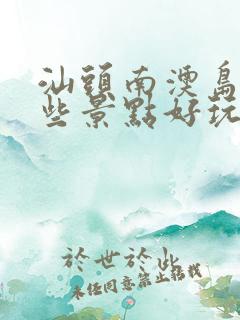 汕頭南澳島
些景點好玩
於世於些
未经同意禁止搭載